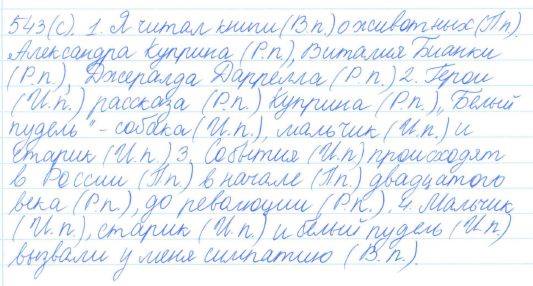 543(с). 1. Я читал книги (В.п.) о животных (П.п.)
Александра Куприна (Р.п.), Виталия Бианки
(Р.п.), Джералда Даррелла (Р.п.) 2. Герои
(И.п.) рассказа (Р.п.) Куприна (Р.п.) „Белый
пудель" - собака (И.п.), мальчик (И.п.) и
старик (И.п.) 3. События (И.п.) происходят
в России (П.п.) в начале (П.п.) двадцатого
века (Р.п.), до революции (Р.п.). 4. Мальчик
(И.п.), старик (И.п.) и белый пудель (И.п.)
вызвали у меня симпатию (В.п.).